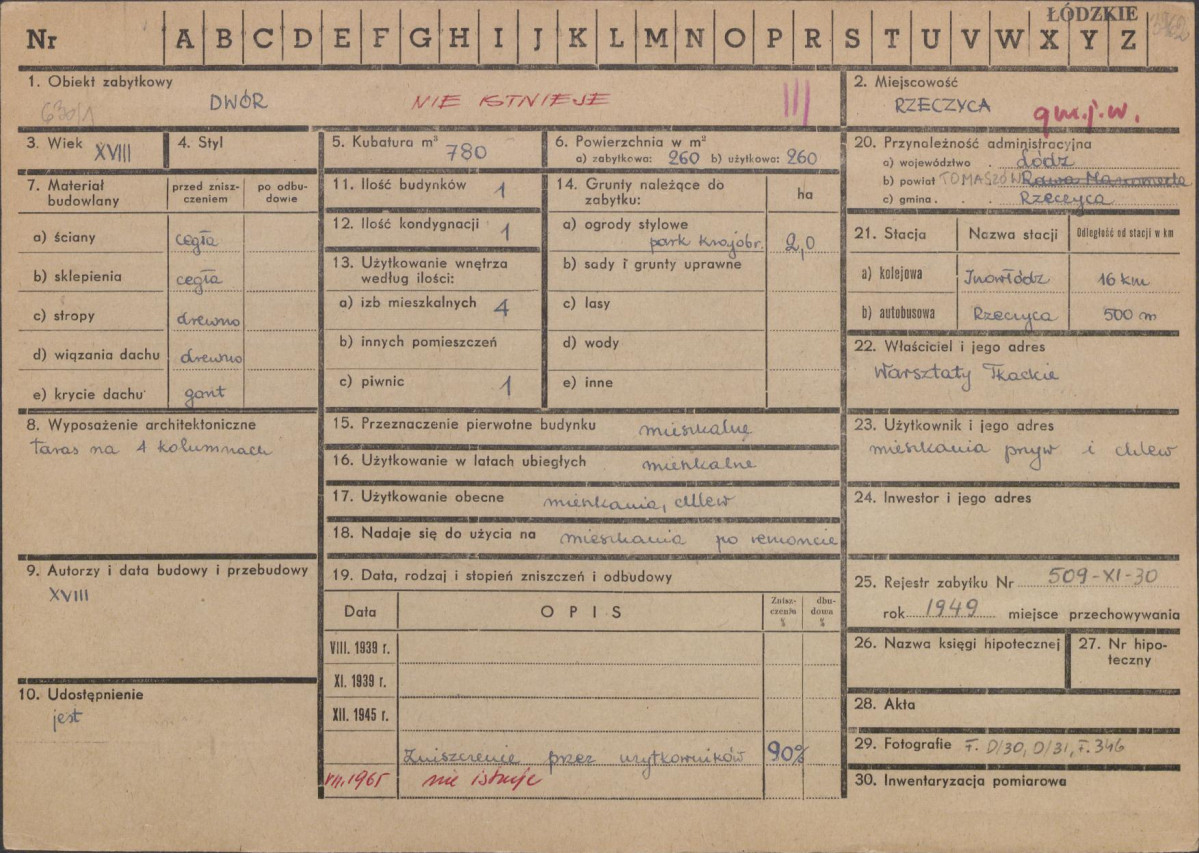 ŁÓDZKIE
Nr A B C D E F G H I J K L M N O P R S T U V W X Y Z
1. Obiekt zabytkowy
DWÓR NIE ISTNIEJE III
2. Miejscowość
RZECZYCA
gm.j.w.
3. Wiek XVIII
4. Styl
5. Kubatura m³ 780
6. Powierzchnia w m²
a) zabytkowa: 260 b) użytkowa: 260
7. Materiał budowlany
przed zniszczeniem
po odbudowie
a) ściany cegła
b) sklepienia cegła
c) stropy drewno
d) wiązania dachu drewno
e) krycie dachu gont
8. Wyposażenie architektoniczne
taras na 4 kolumnach
9. Autorzy i data budowy i przebudowy
XVIII
10. Udostępnienie
jest
11. Ilość budynków 1
12. Ilość kondygnacji 1
13. Użytkowanie wnętrza według ilości:
a) izb mieszkalnych 4
b) innych pomieszczeń
c) piwnic 1
14. Grunty należące do zabytku: ha
a) ogrody stylowe
park krajobr. 2,0
b) sady i grunty uprawne
c) lasy
d) wody
e) inne
15. Przeznaczenie pierwotne budynku mieszkalne
16. Użytkowanie w latach ubiegłych mieszkalne
17. Użytkowanie obecne mieszkania, chlew
18. Nadaje się do użycia na mieszkania po remoncie
19. Data, rodzaj i stopień zniszczeń i odbudowy
Data OPIS Zniszczenia % dbudowa %
VIII. 1939 r.
XI. 1939 r.
XII. 1945 r.
Zniszczenie przez użytkowników 90%
VII.1965 nie istnieje
20. Przynależność administracyjna
a) województwo Łódź
b) powiat TOMASZÓW Rawa Mazowiecka
c) gmina Rzeczyca
21. Stacja Nazwa stacji Odległość od stacji w km
a) kolejowa Inowłódz 16 km
b) autobusowa Rzeczyca 500 m
22. Właściciel i jego adres
Warsztaty Tkackie
23. Użytkownik i jego adres
mieszkania pryw i chlew
24. Inwestor i jego adres
25. Rejestr zabytku Nr 509-XI-30
rok 1949 miejsce przechowywania
26. Nazwa księgi hipotecznej
27. Nr hipoteczny
28. Akta
29. Fotografie F. D/30, D/31, F. 346
30. Inwentaryzacja pomiarowa